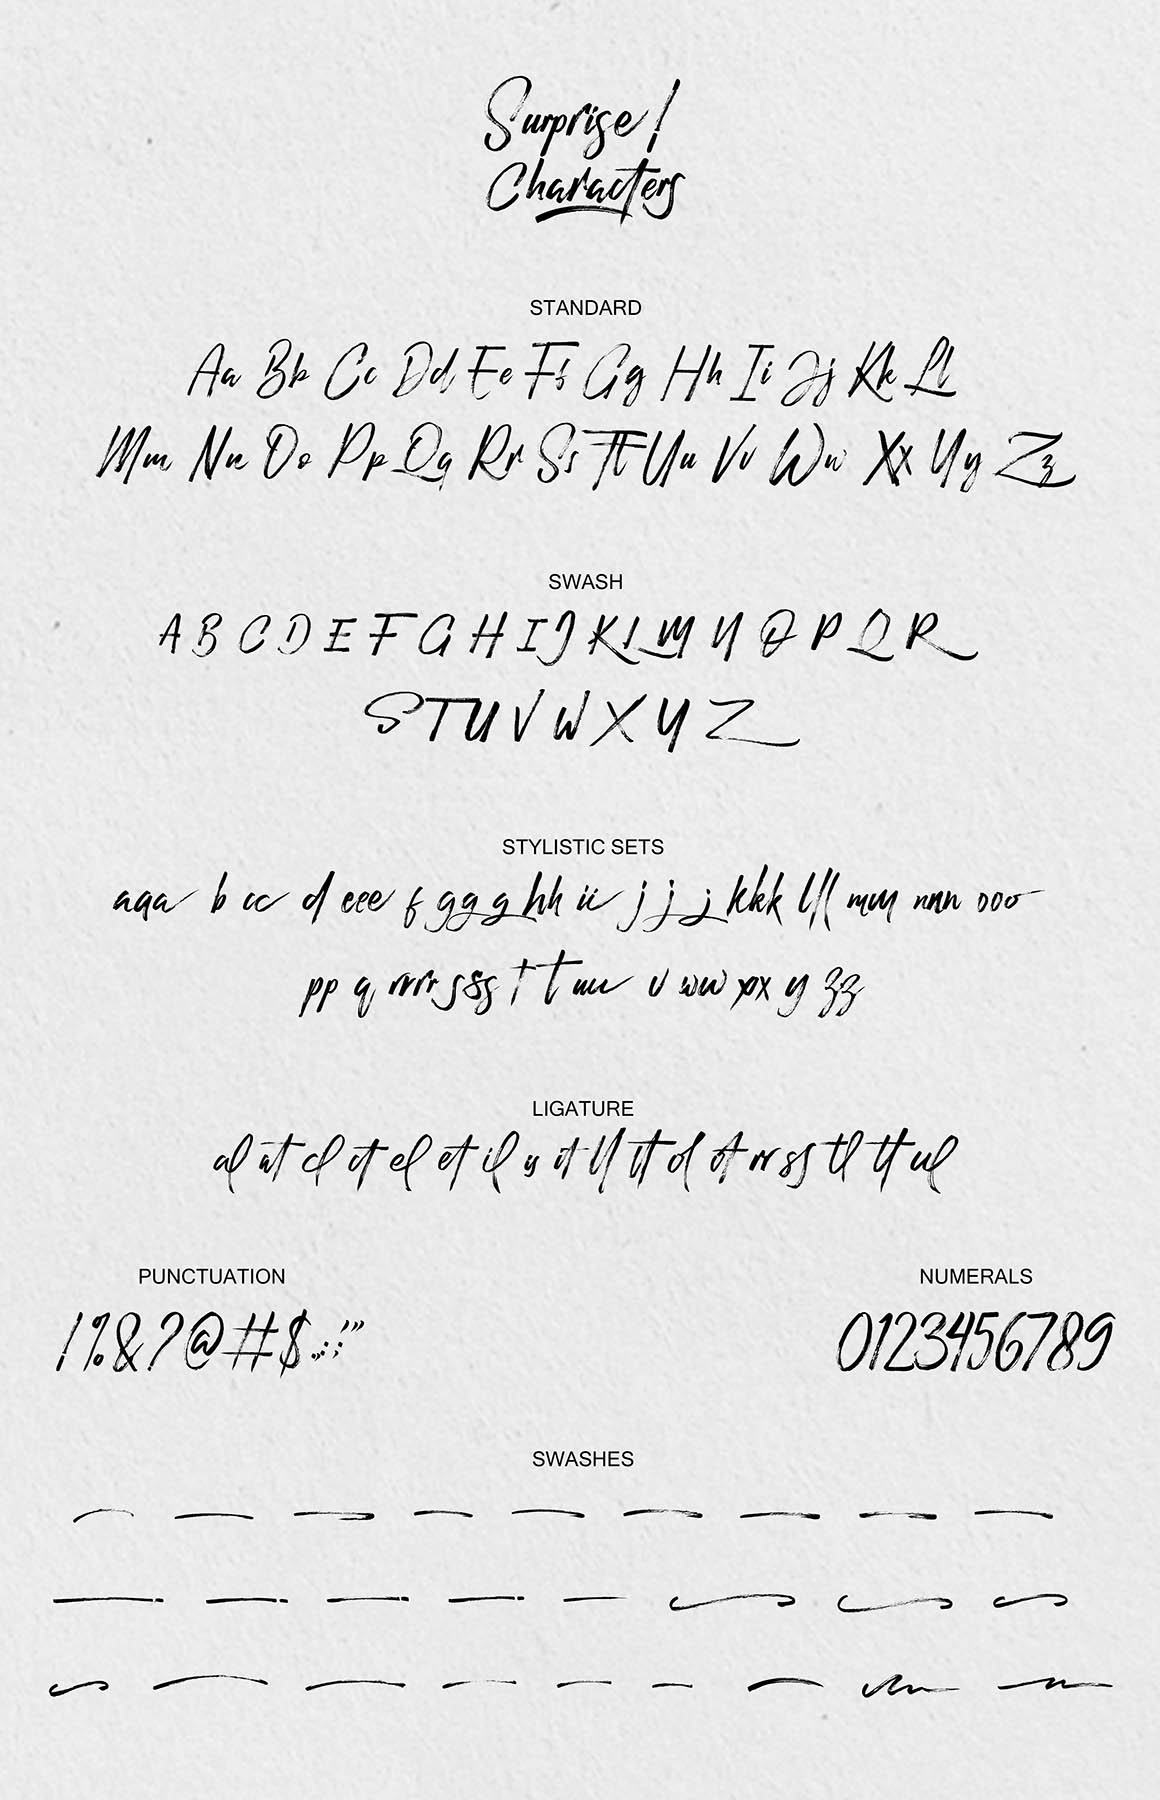 Surprise!
Characters
STANDARD
Aa Bb Cc Dd Ee Ff Gg Hh Ii Jj Kk Ll
Mm Nn Oo Pp Qq Rr Ss Tt Uu Vv Ww Xx Yy Zz
SWASH
A B C D E F G H I J K L M N O P Q R
S T U V W X Y Z
STYLISTIC SETS
aaa b cc d eee f ggg hh ii j j j kkk lll mm nnn ooo
pp q rrrr sss t t uu v ww xx y zz
LIGATURE
al at cl ct el et il is it ll lt ol ot rr ss tl tt ul
PUNCTUATION
!%&?@#$.,:;'"
NUMERALS
0123456789
SWASHES